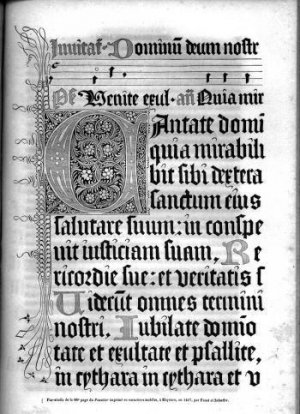 Invitat. Dominū deum nostr
Ps Venite exul. añ Quia mir
CAntate domi
quia mirabili
bit sibi dextera
sanctum eius
salutare suum: in conspe
uit iusticiam suam, Re
ricordie sue: et veritatis s
Viderūt omnes termini
nostri, Iubilate domīo
tate et exultate et psallite,
in cythara in cythara et v
Fac-simile de la page du Psautier imprimé en caractères mobiles, à Mayence, en 1457, par Faust et Schœffer.